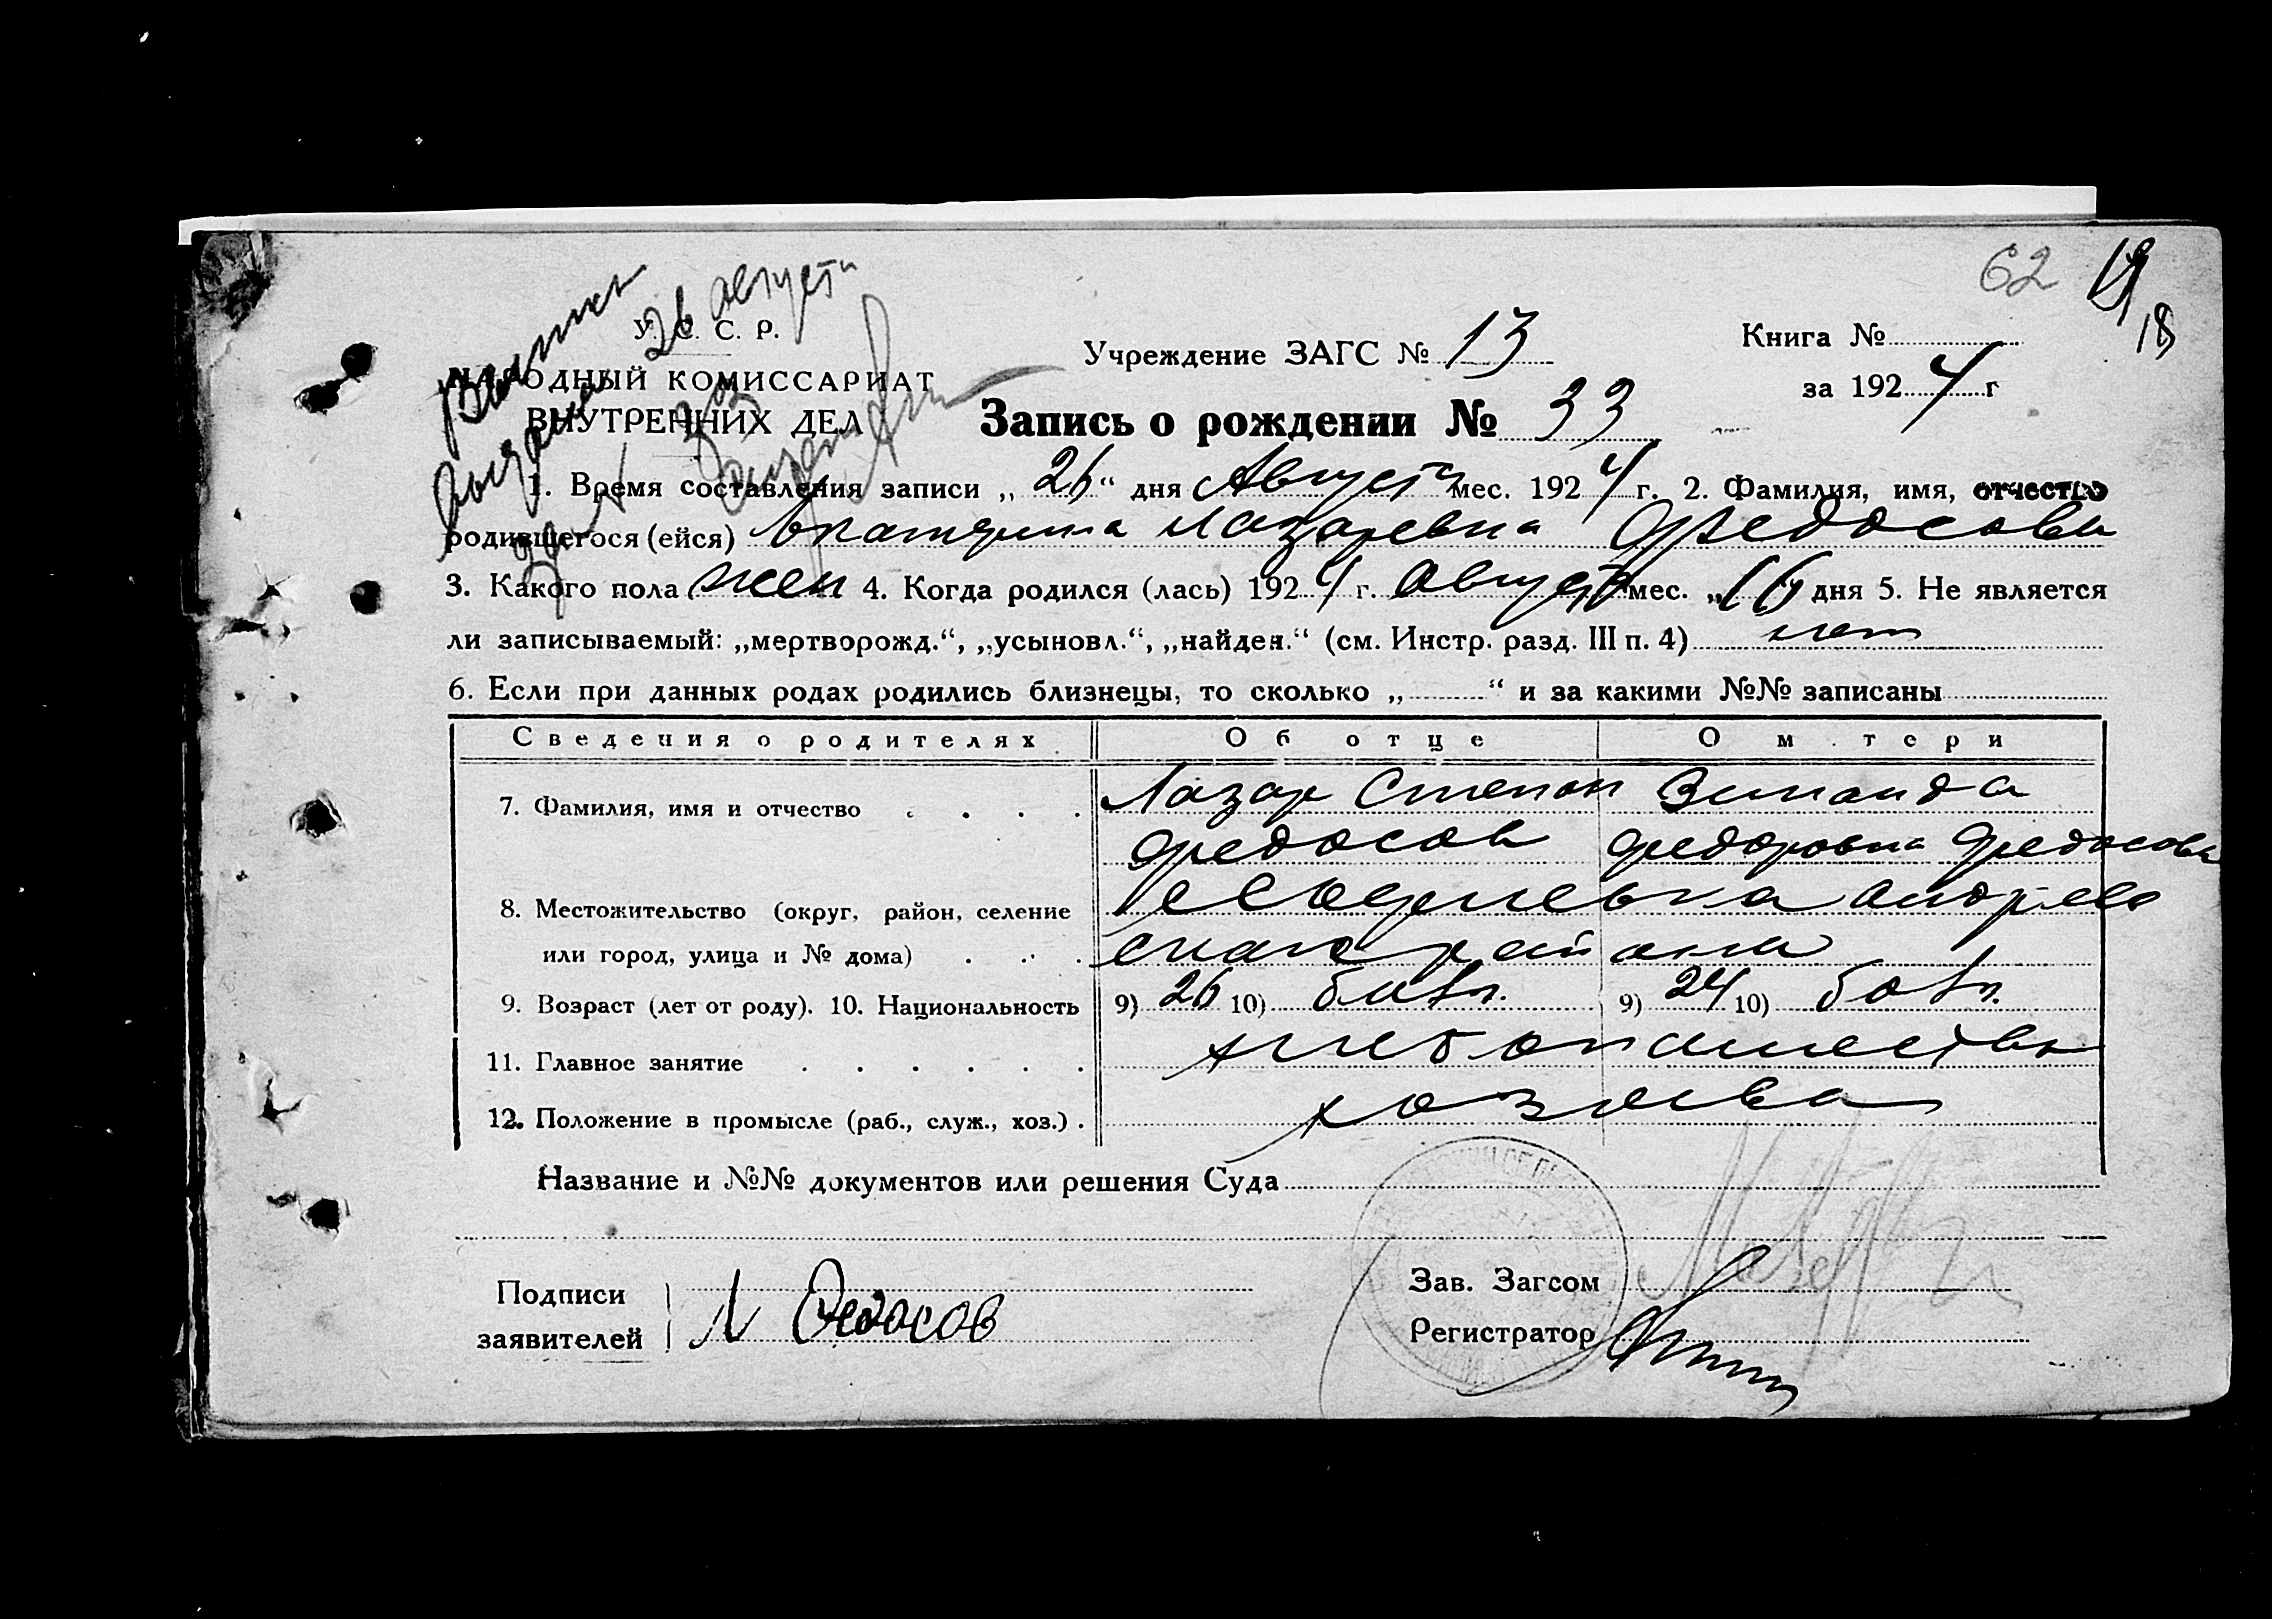 62 19
18
Выпись
выдана 26 август
за № 33
У. С. С. Р.
НАРОДНЫЙ КОМИССАРИАТ
ВНУТРЕННИХ ДЕЛ
Учреждение ЗАГС № 13
Книга №
за 1924 г
Запись о рождении № 33
1. Время составления записи „26“ дня Август мес. 1924 г. 2. Фамилия, имя, отчество
родившегося (ейся) Екатерина Лазаревна Федосова
3. Какого пола жен 4. Когда родился (лась) 1924 г. август мес. „16 дня 5. Не является
ли записываемый: „мертворожд.“, „усыновл.“, „найден.“ (см. Инстр. разд. III п. 4) нет
6. Если при данных родах родились близнецы, то сколько „ “ и за какими №№ записаны
Сведения о родителях Об отце О м.тери
7. Фамилия, имя и отчество Лазар Степан Зинаида
Федосов Федоровна Федосова
8. Местожительство (округ, район, селение
или город, улица и № дома)
9. Возраст (лет от роду). 10. Национальность 9) 26 10) 9) 24 10)
11. Главное занятие хлебопашество
12. Положение в промысле (раб., служ., хоз.) хозяева
Название и №№ документов или решения Суда
Подписи
заявителей Л Федосов
Зав. Загсом
Регистратор